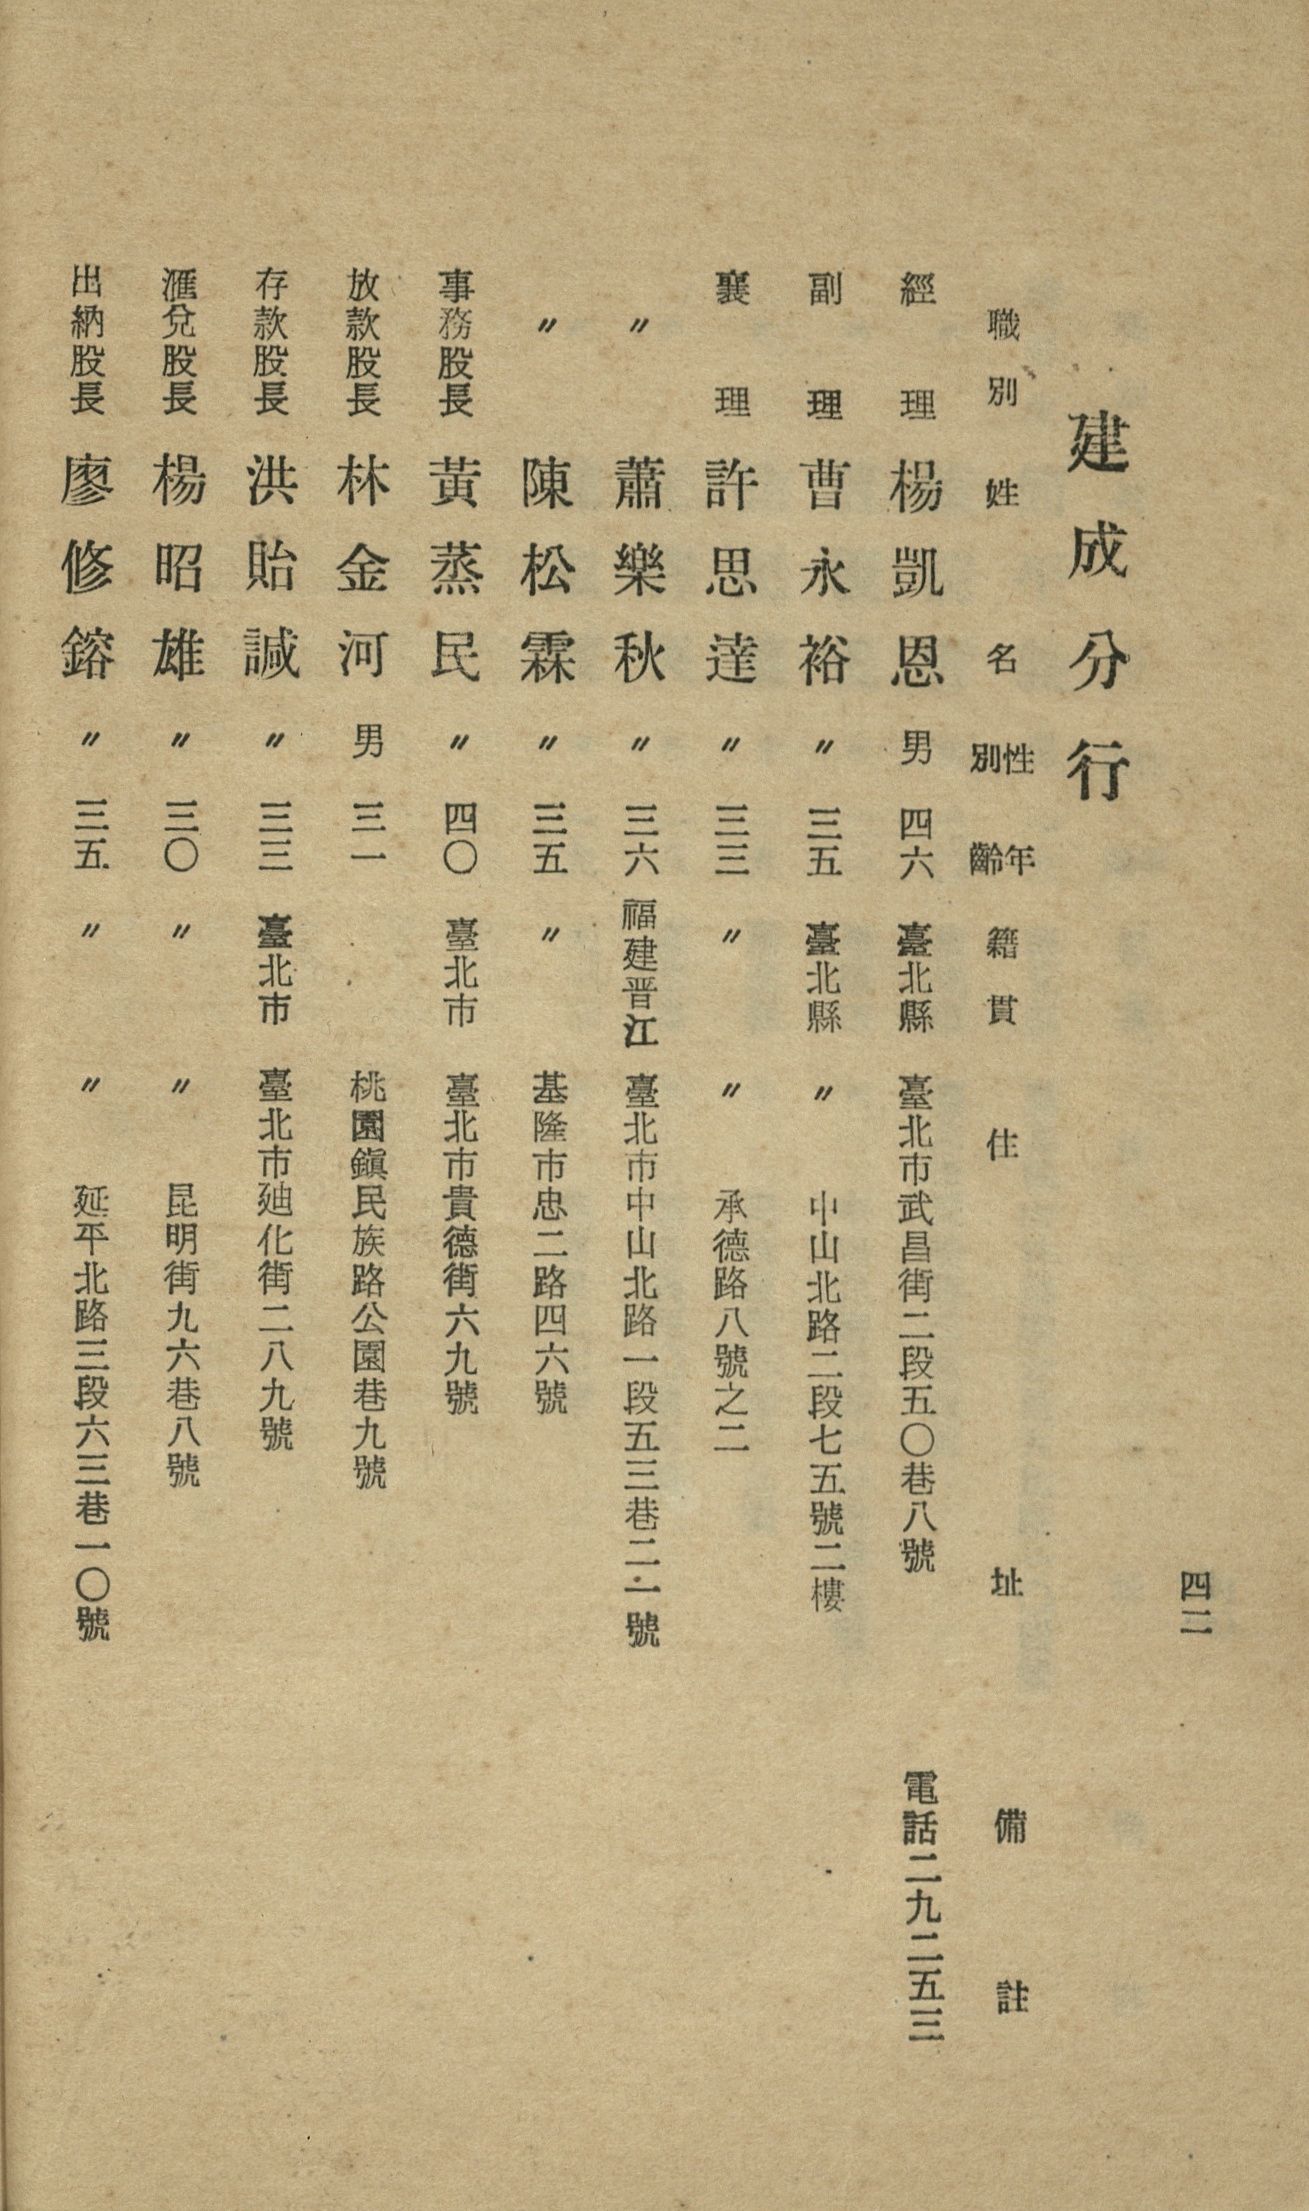 四二
建成分行
職別 姓名 性別 年齡 籍貫 住址 備註
經理 楊凱恩 男 四六 臺北縣 臺北市武昌街二段五〇巷八號 電話二九二五三
副理 曹永裕 〃 三五 臺北縣 〃 中山北路二段七五號二樓
襄理 許思達 〃 三三 〃 〃 承德路八號之二
〃 蕭樂秋 〃 三六 福建晋江 臺北市中山北路一段五三巷二一號
〃 陳松霖 〃 三五 〃 基隆市忠二路四六號
事務股長 黃蒸民 〃 四〇 臺北市 臺北市貴德街六九號
放款股長 林金河 男 三一 桃園鎭民族路公園巷九號
存款股長 洪貽諴 〃 三三 臺北市 臺北市廸化街二八九號
滙兌股長 楊昭雄 〃 三〇 〃 〃 昆明街九六巷八號
出納股長 廖修鎔 〃 三五 〃 〃 延平北路三段六三巷一〇號